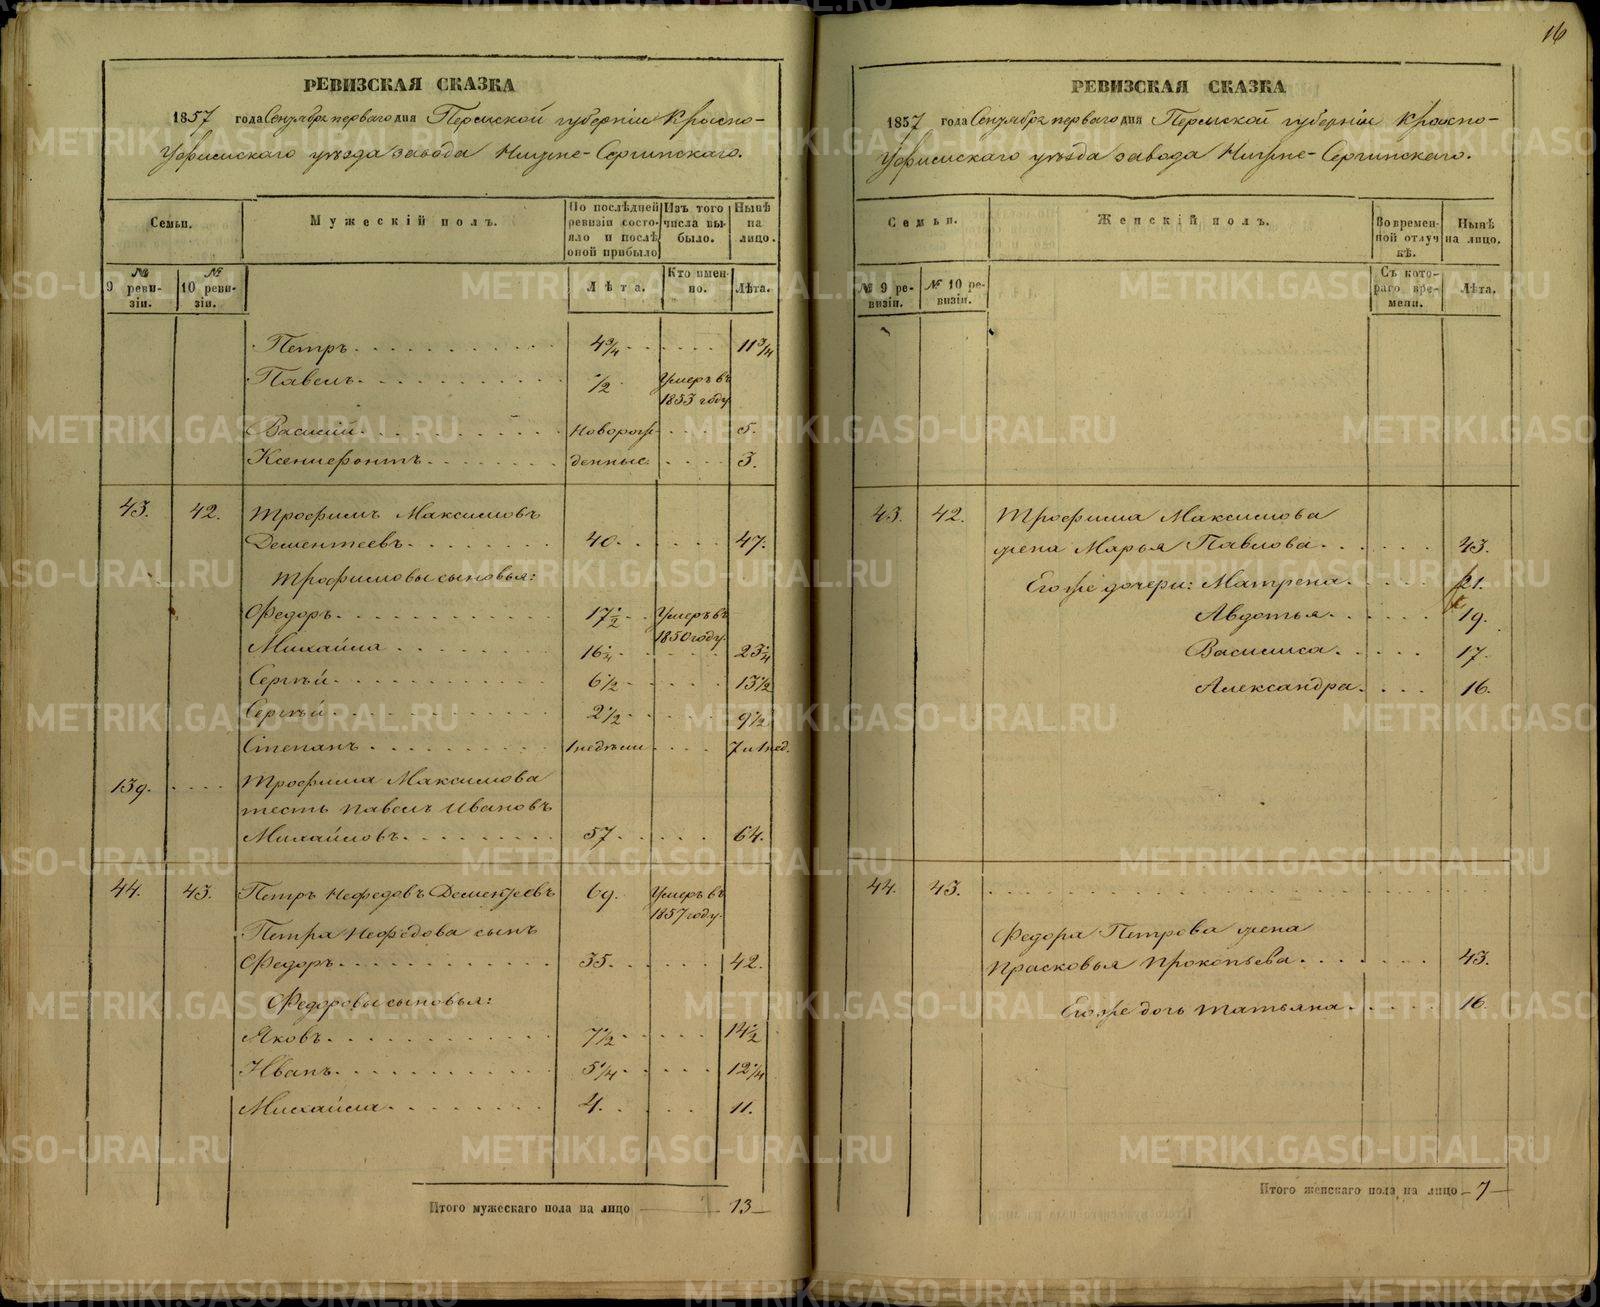 16
РЕВИЗСКАЯ СКАЗКА
1857 года Сентября перваго дня Пермской губерніи Красно-
Уфимскаго уѣзда завода Нижне-Сергинскаго.
Семьи.
Мужескій полъ.
По послѣдней ревизіи состояло и послѣ оной прибыло
Изъ того числа выбыло.
Нынѣ на лицо.
№ 9 ревизіи.
№ 10 ревизіи.
Лѣта.
Кто именно.
Лѣта.
Петръ 4 3/4 11 3/4
Павелъ 1/2 Умеръ въ
1853 году
Василій Новорож 5.
Ксенофонтъ денные. 3.
43. 42. Трофимъ Максимовъ
Дементеевъ 40 47.
Трофимовы сыновья:
Федоръ 17 1/2 Умеръ въ
1850 году.
Михайла 16 1/4 23 1/4
Сергѣй 6 1/2 13 1/2
Сергѣй 2 1/2 9 1/2
Степанъ 1 недѣли 7 и 1 нед.
139. Трофима Максимова
тесть Павелъ Ивановъ
Михайловъ 57 64.
44. 43. Петръ Нефедовъ Дементьевъ 69. Умеръ въ
1857 году.
Петра Нефедова сынъ
Федоръ 35. 42.
Федоровы сыновья:
Яковъ 7 1/2 14 1/2
Иванъ 5 1/4 12 1/4
Михайла 4. 11.
Итого мужескаго пола на лицо 13
РЕВИЗСКАЯ СКАЗКА
1857 года Сентября перваго дня Пермской губерніи Красно-
Уфимскаго уѣзда завода Нижне-Сергинскаго.
Семьи.
Женскій полъ.
Во временной отлучкѣ.
Нынѣ на лицо.
№ 9 ревизіи.
№ 10 ревизіи.
Съ котораго времени.
Лѣта.
43. 42. Трофима Максимова
жена Марья Павлова 43.
Его же дочери: Матрена 21.
Авдотья 19.
Василиса 17.
Александра 16.
44. 43.
Федора Петрова жена
Прасковья Прокопьева 43.
Его же дочь Татьяна 16.
Итого женскаго пола на лицо 7
METRIKI.GASO-URAL.RU